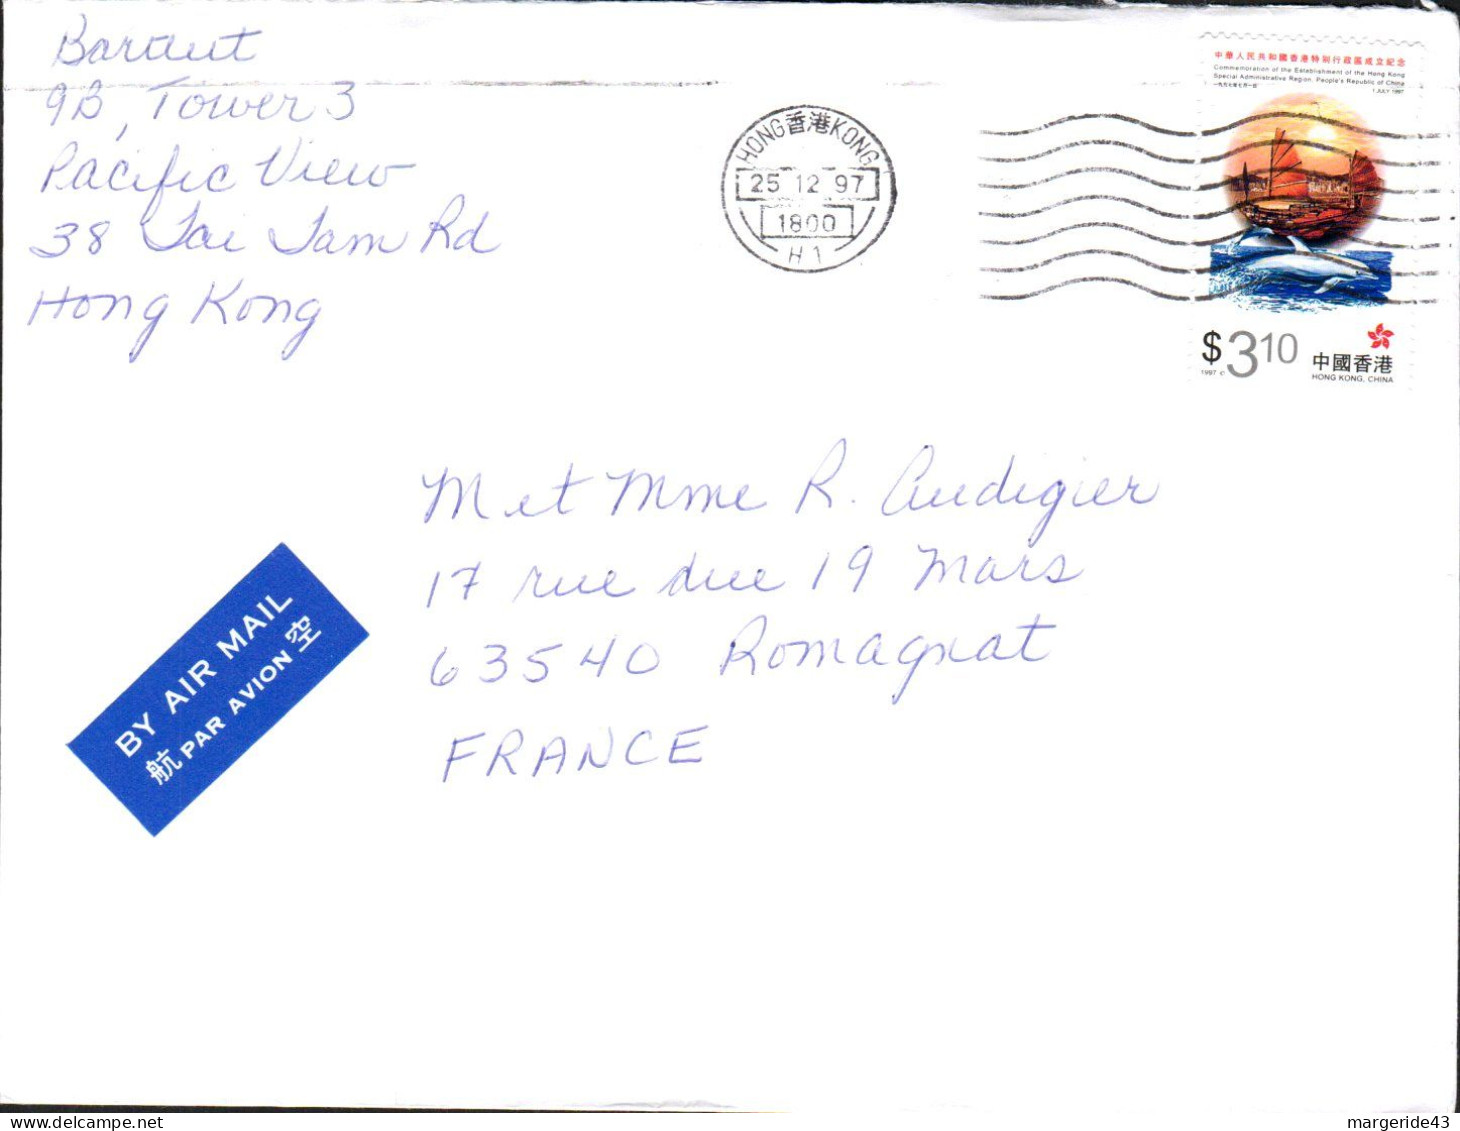 Baraut
9B, Tower 3
Pacific View
38 Tai Tam Rd
Hong Kong
HONG香港KONG
25 12 97
1800
H1
中華人民共和國香港特別行政區成立紀念
Commemoration of the Establishment of the Hong Kong
Special Administrative Region, People's Republic of China
一九九七年七月一日
1 JULY 1997
$310
1997 ©
中國香港
HONG KONG, CHINA
M et Mme R. Audigier
17 rue due 19 Mars
63540 Romagnat
FRANCE
BY AIR MAIL
航 PAR AVION 空
margeride43